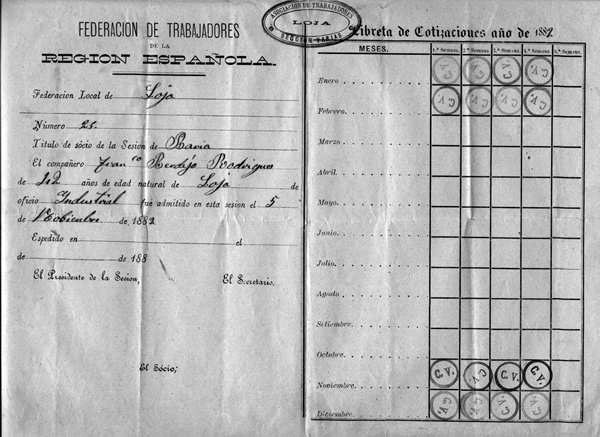 FEDERACION DE TRABAJADORES
DE LA
REGION ESPAÑOLA.
Federacion Local de Loja
Número 25.
Titulo de sócio de la Sesion de Varia
El compañero Franco Rodrigues
de 22 años de edad natural de Loja de
oficio Industrial fue admitido en esta sesion el 5
de de 1882
Espedido en el
de de 188
El Presidente de la Sesion, El Secretario.
El Sócio;
ASOCIACION DE TRABAJADORES
LOJA
SECCION VARIAS
Libreta de Cotizaciones año de 1882
MESES. 1.ª Semana. 2.ª Semana. 3.ª Semana. 4.ª Semana. 5.ª Semana.
Enero C.V. C.V. C.V. C.V.
Febrero C.V. C.V. C.V. C.V.
Marzo
Abril
Mayo
Junio
Julio
Agosto
Setiembre
Octubre
Noviembre C.V. C.V. C.V. C.V.
Diciembre C.V. C.V. C.V. C.V.